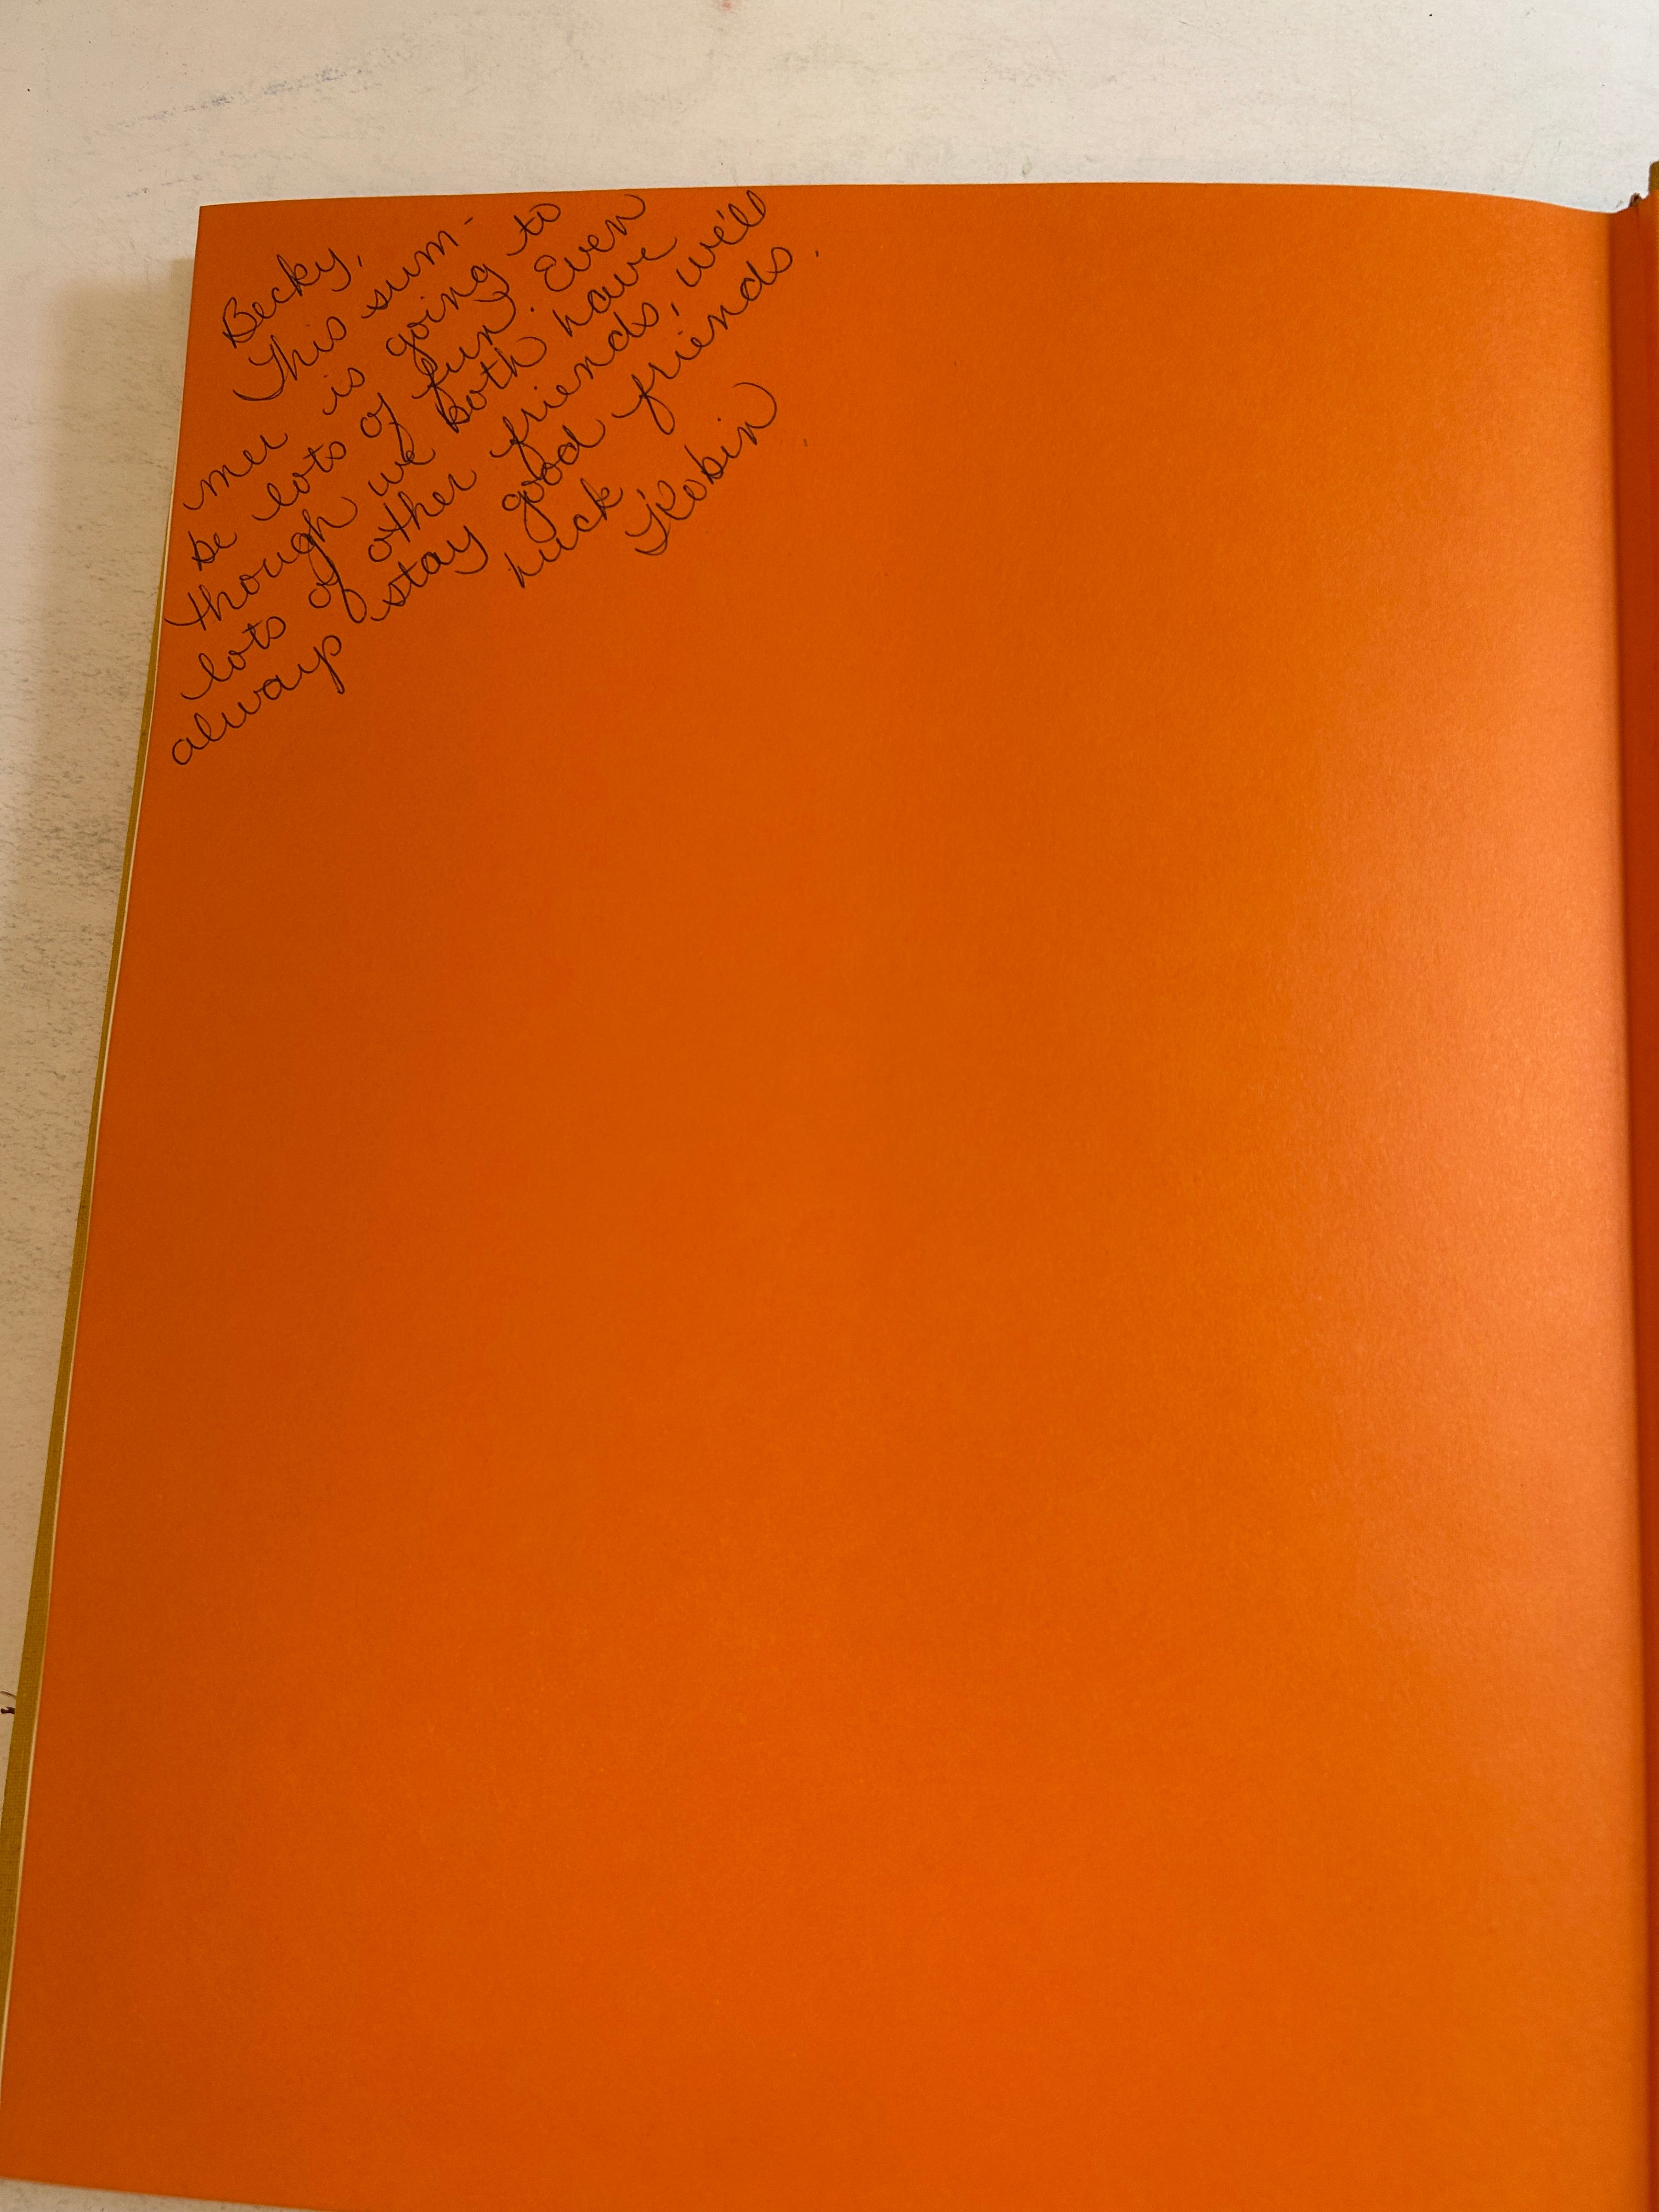 Becky,
This sum-
mer is going to
be lots of fun. Even
though we both have
lots of other friends, we'll
always stay good friends.
Luck
Robin